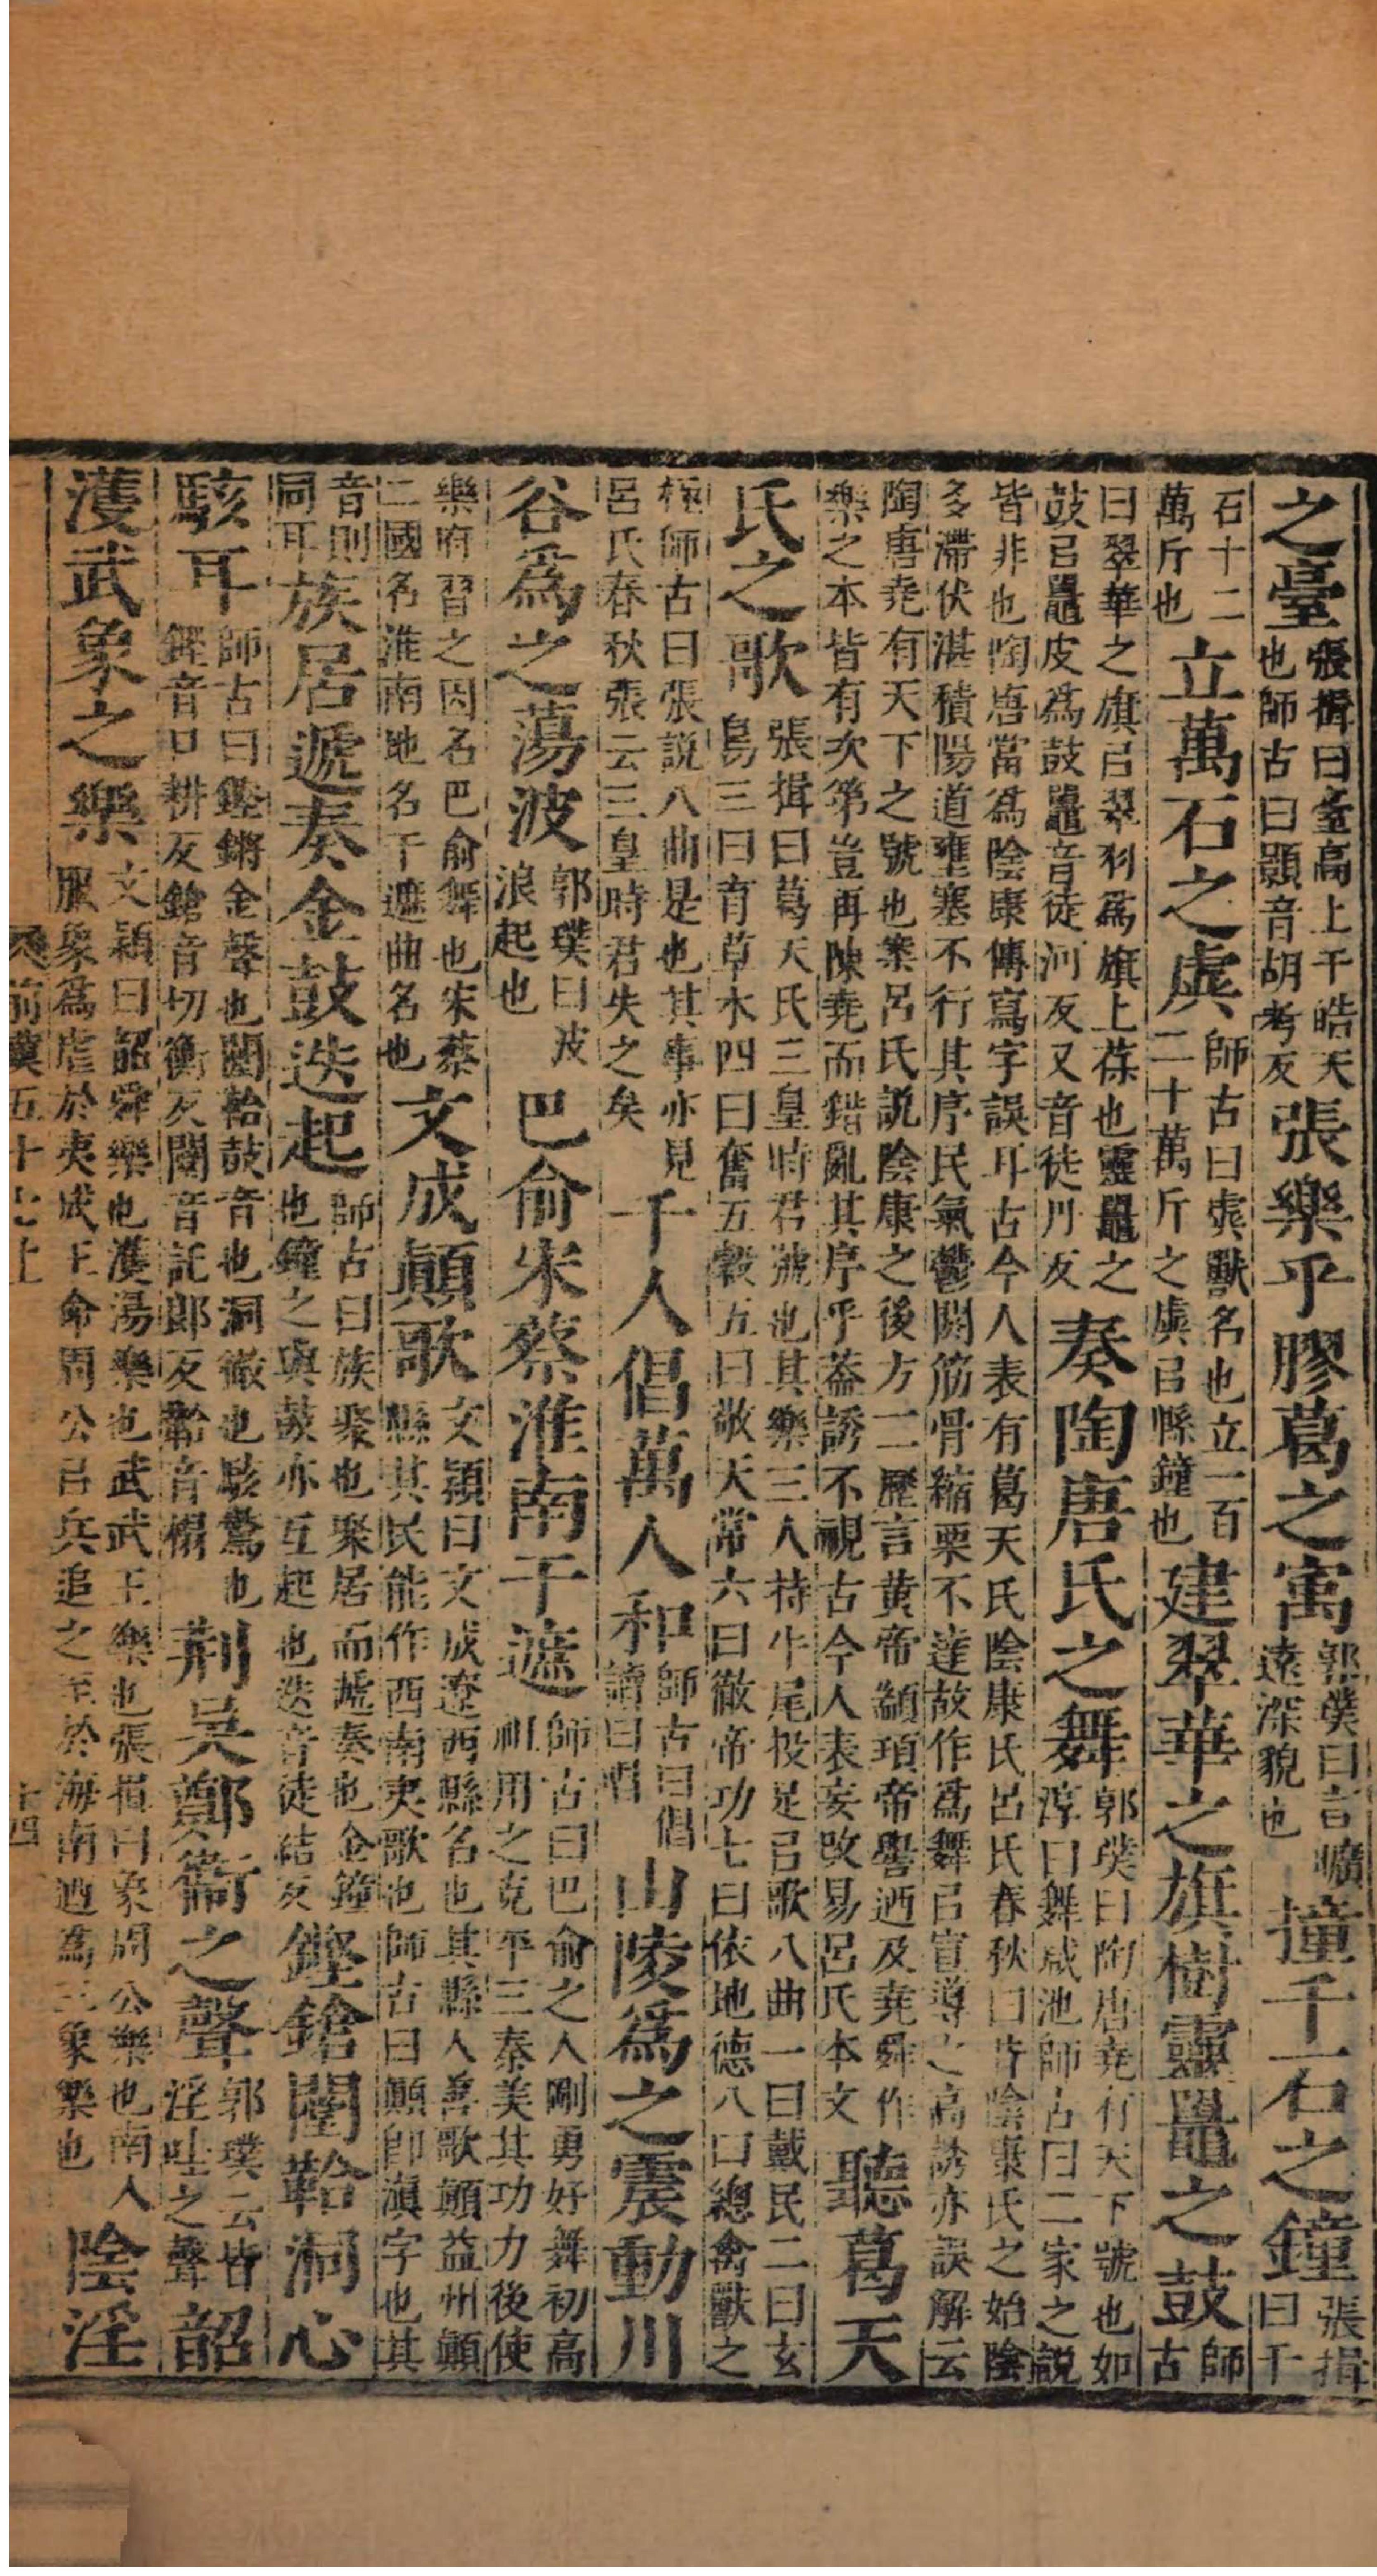 之臺張揖曰臺高上干皓天也師古曰顥音胡考反張樂乎膠葛之㝢郭璞曰言曠遠深貌也撞千石之鐘張揖曰千
石十二萬斤也立萬石之虡師古曰虡獸名也立一百二十萬斤之虡㠯縣鐘也建翠華之旗樹靈鼉之鼓師古
曰翠華之旗㠯翠羽爲旗上葆也靈鼉之鼓㠯鼉皮爲鼓鼉音徒河反又音徒丹反奏陶唐氏之舞郭璞曰陶唐堯有天下號也如淳曰舞咸池師古曰二家之說
皆非也陶唐當爲陰康傳寫字誤耳古今人表有葛天氏陰康氏呂氏春秋曰昔陰康氏之始陰多滯伏湛積陽道壅塞不行其序民氣鬱閼筋骨縮栗不達故作爲舞㠯宣導之高誘亦誤解云
陶唐堯有天下之號也案呂氏說陰康之後方一一歷言黃帝顓頊帝嚳迺及堯舜作樂之本皆有次第豈再陳堯而錯亂其序乎蓋誘不視古今人表妄改易呂氏本文聽葛天
氏之歌張揖曰葛天氏三皇時君號也其樂三人持牛尾投足㠯歌八曲一曰載民二曰玄鳥三曰育草木四曰奮五穀五曰敬天常六曰徹帝功七曰依地德八曰總禽獸之
極師古曰張說八曲是也其事亦見呂氏春秋張云三皇時君失之矣千人倡萬人和師古曰倡讀曰唱山陵爲之震動川
谷爲之蕩波郭璞曰波浪起也巴俞宋蔡淮南干遮師古曰巴俞之人剛勇好舞初高祖用之克平三秦美其功力後使
樂府習之因名巴俞舞也宋蔡二國名淮南地名干遮曲名也文成顛歌文穎曰文成遼西縣名也其縣人善歌顛益州顛縣其民能作西南夷歌也師古曰顛卽滇字也其
音則同耳族居遞奏金鼓迭起師古曰族聚也聚居而遞奏也金鐘也鐘之與鼓亦互起也迭音徒結反鏗鎗闛鞈洞心
駭耳師古曰鏗鏘金聲也闛鞈鼓音也洞徹也駭驚也鏗音口耕反鎗音切衡反闛音託郎反鞈音榻荆吳鄭衞之聲郭璞云皆淫哇之聲韶
濩武象之樂文穎曰韶舜樂也濩湯樂也武武王樂也張揖曰象周公樂也南人服象爲虐於夷成王命周公㠯兵追之至於海南迺爲三象樂也陰淫
前漢五十七上 十四